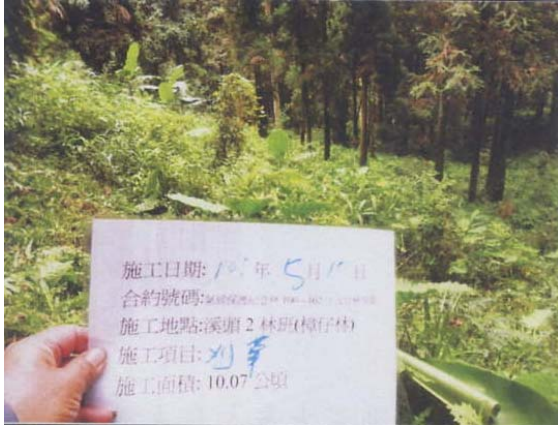 施工日期: 101年 5月 日
合約號碼:
施工地點:溪頭 2 林班(樟仔林)
施工項目:刈草
施工面積: 10.07 公頃